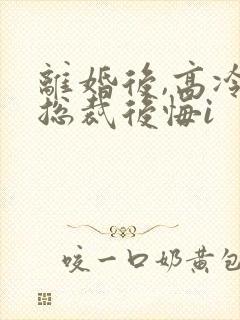 離婚後,高冷
總裁後悔i
咬一口奶黃包